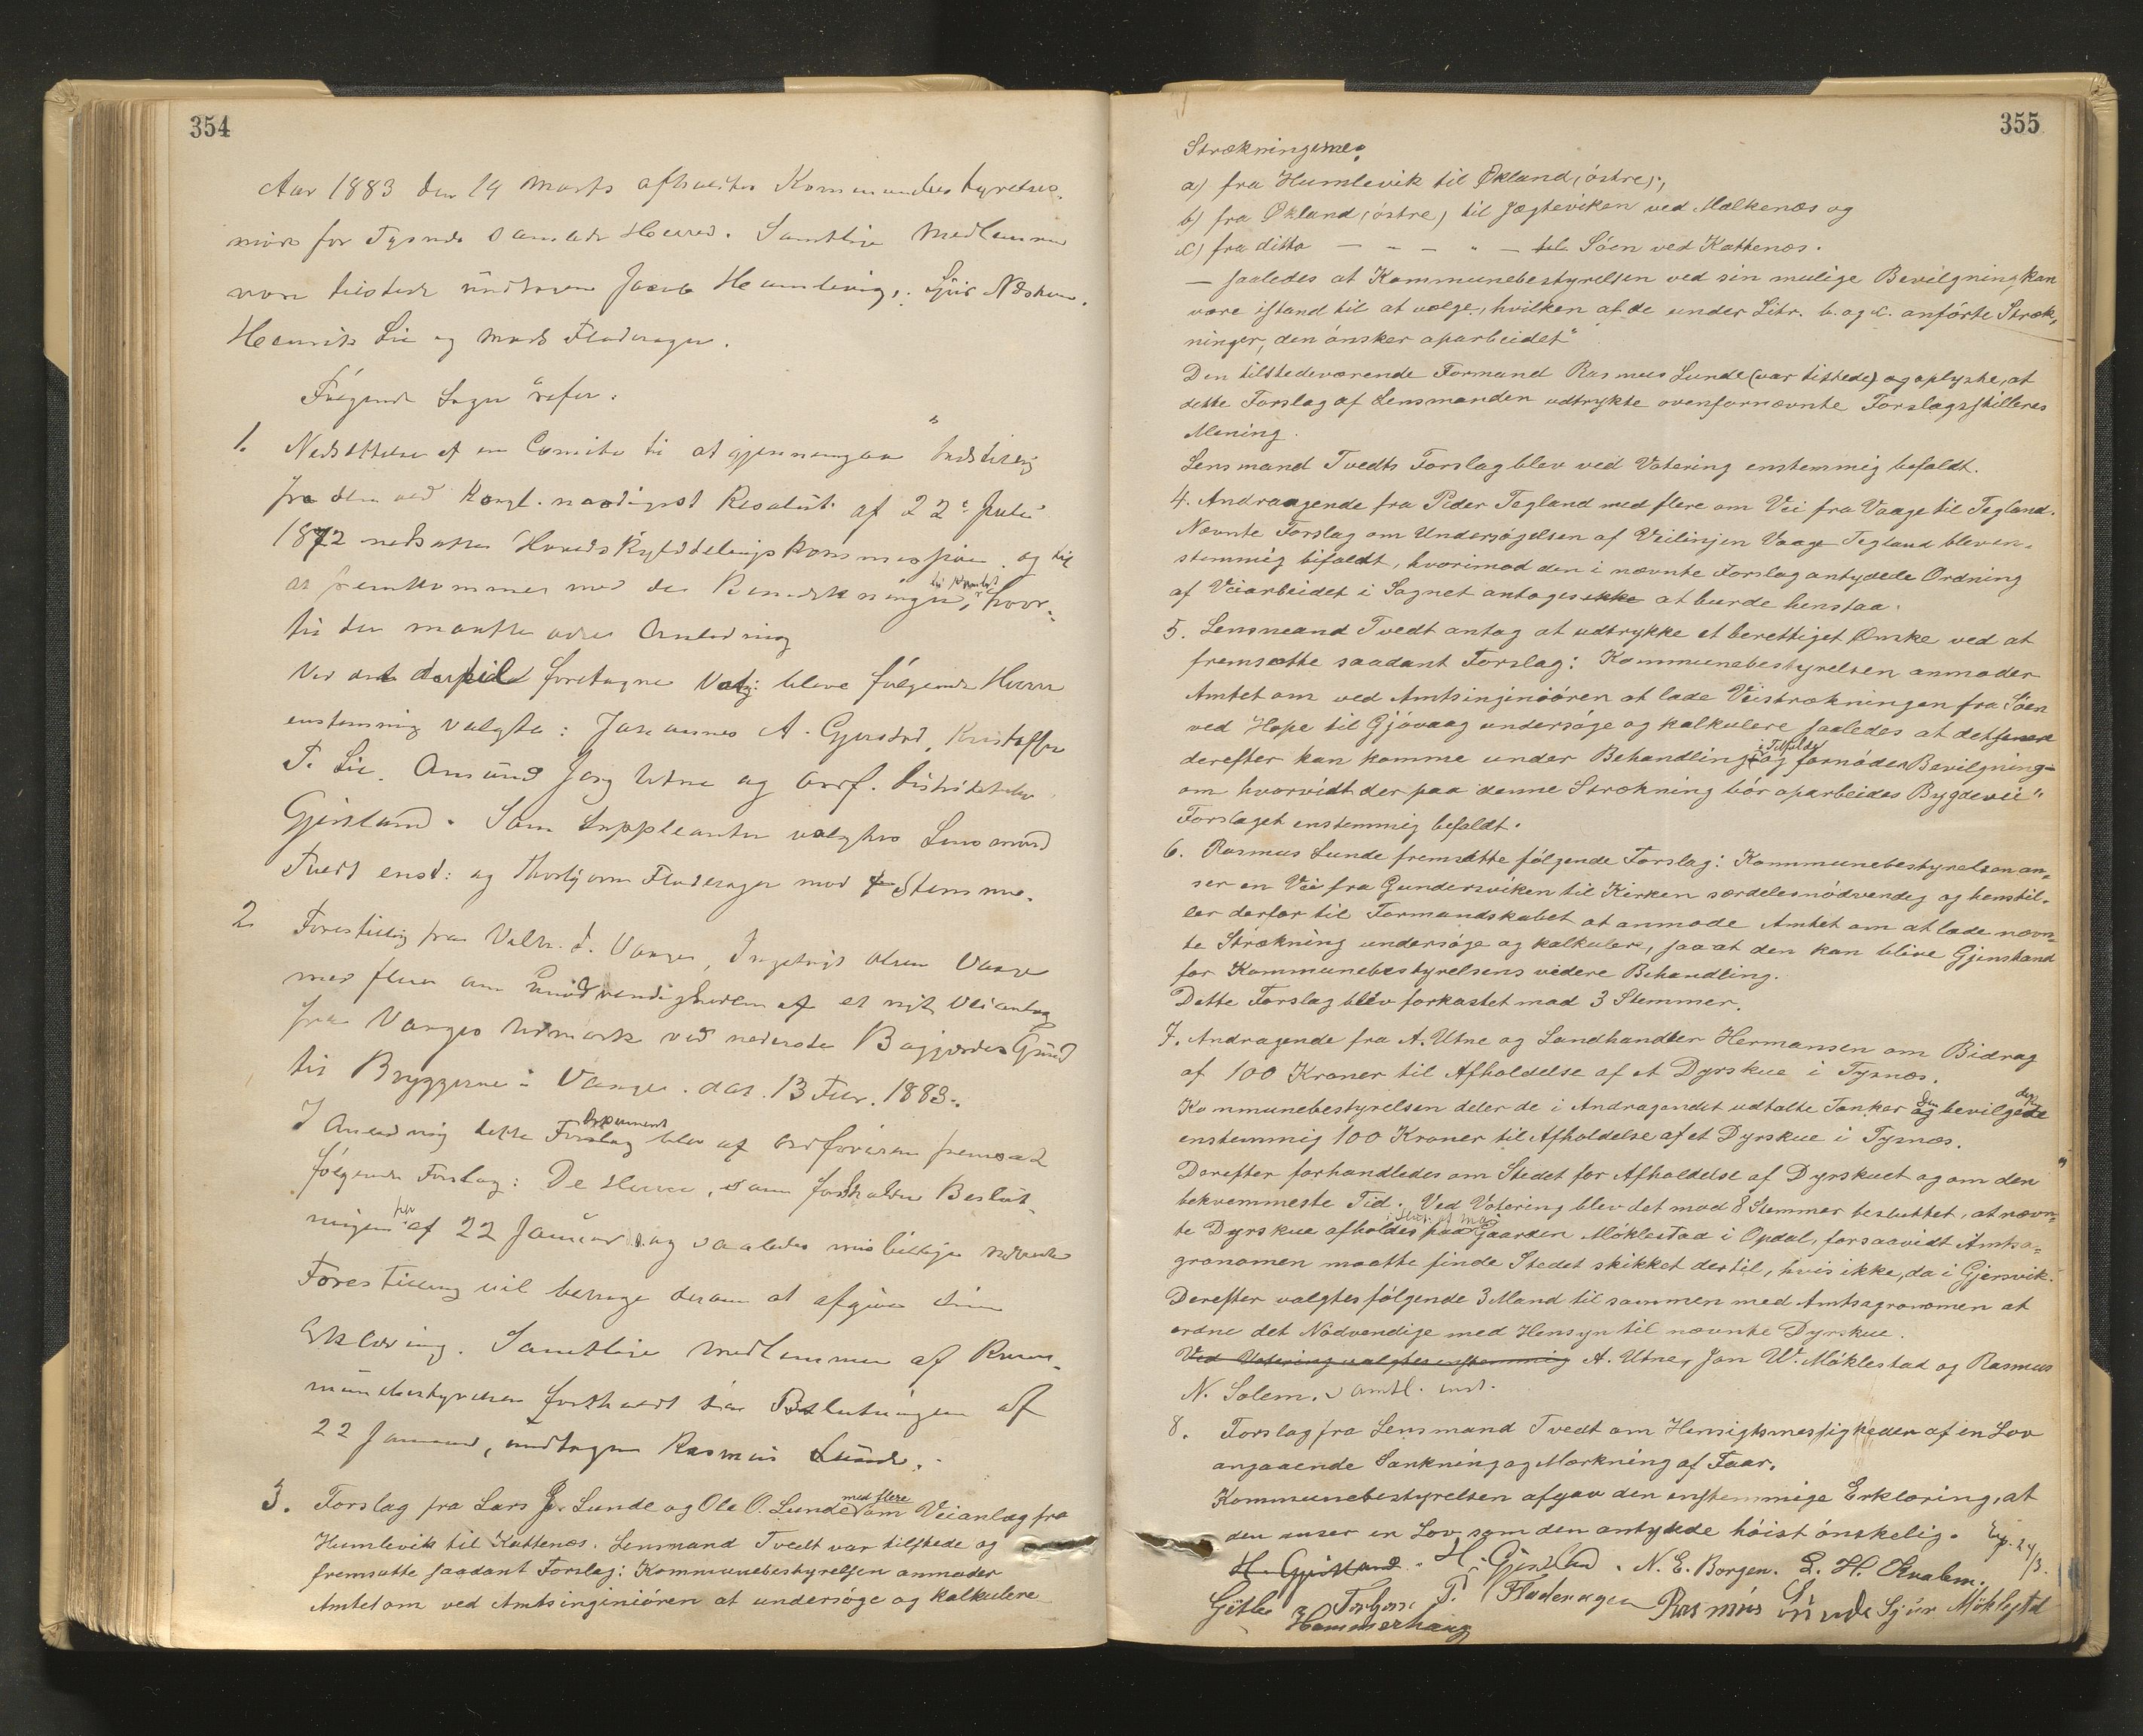 354
Aar 1883 den 14 Marts afholdtes Kommunebestyrelses-
møde for Tysnæs Samlede Herred. Samtlige Medlemmer
vare tilstede undtagen Jacob Humlevig,
Henrik Lie og Mads Fladerager.
Følgende Sager refer:
1. Nedsættelse af en Comite til at gjennemgaa Indstilling
fra den ved Kongl. naadigst Resolut. af 22de Juli
1872 nedsatte Herredskyldddelingskommission og til
at fremkomme med de Bemærkninger, hvor-
til der maatte være Anledning
Ved det dertil foretagne Valg: bleve følgende Herrer
enstemmig valgte: Johannes A. Gjerstad, Kristoffer
T. Lie, Amund Utne og Ordf. Distriktslæge
Gjerstland. Som Suppleanter valgtes Lensmand
Tvedt enst: og Thorbjørn Fladerager med Stemme.
2 Forestilling fra Vilh. D. Vange, Ingebrigt Olsen Vange
med flere om Nødvendigheden af et nyt Veianlæg
fra Vanges Udmark ved nederste Bøgjærdes Grind
til Bryggerne i Vange. dat. 13 Febr. 1883.
I Anledning dette Forslag blev af Ordføreren fremsat
følgende Forslag: De Herrer, som fastholder Beslut-
ningen af 22 Januar og saaledes misbilliger nævnte
Forestilling vil behage derom at afgive sin
Erklæring. Samtlige Medlemmer af Kom-
munebestyrelsen fastholdt sin Beslutningen af
22 Januar, undtagen Rasmus Lunde.
3. Forslag fra Lars J. Lunde og Ole O. Lunde med flere om Veianlæg fra
Humlevik til Kattenæs. Lensmand Tvedt var tilstede og
fremsatte saadant Forslag: Kommunebestyrelsen anmoder
Amtet om ved Amtsinginiøren at undersøge og kalkulere
355
Strækningerne:
a) fra Humlevik til Økland (østre);
b) fra Økland (østre) til Jægteviken ved Malkenæs og
c) fra ditto — - — " — til Søen ved Kattenæs.
— saaledes at Kommunebestyrelsen ved sin mulige Bevilgning kan
være istand til at vælge, hvilken af de under Litr. b. og c. anførte Stræk-
ninger, den ønsker oparbeidet"
Den tilstedeværende Formand Rasmus Lunde (var tilstede) og oplyste, at
dette Forslag af Lensmanden udtrykte ovenfornævnte Forslagsstilleres
Mening.
Lensmand Tvedts Forslag blev ved Votering enstemmig befaldt.
4. Andraagende fra Peder Tegland med flere om Vei fra Vaage til Tegland.
Nævnte Forslag om Undersøgelsen af Veilinjen Vaage Tegland bleven-
stemmig bifaldt, hvorimod den i nævnte Forslag antydede Ordning
af Veiarbeidet i Sognet antages ikke at burde henstaa.
5. Lensmand Tvedt antog at udtrykke et berettiget Ønske ved at
fremsætte saadant Forslag: Kommunebestyrelsen anmoder
Amtet om ved Amtsinginiøren at lade Veistrækningen fra Søen
ved Hope til Gjøvaag undersøge og kalkulere saaledes at det senere
derefter kan komme under Behandling og i Tilfælde fornøden Bevilgning
om hvorvidt der paa denne Strækning bør oparbeides Bygdevei"
Forslaget enstemmig befaldt.
6. Rasmus Lunde fremsatte følgende Forslag: Kommunebestyrelsen an-
ser en Vei fra Gundersviken til Kirken særdeles nødvendig og henstil-
ler derfor til Formandskabet at anmode Amtet om at lade nævn-
te Strækning undersøge og kalkulere, saa at den kan blive Gjenstand
for Kommunebestyrelsens videre Behandling.
Dette Forslag blev forkastet mod 3 Stemmer.
7. Andragende fra A. Utne og Landhandler Hermansen om Bidrag
af 100 Kroner til Afholdelse af et Dyrskue i Tysnæs.
Kommunebestyrelsen deler de i Andragendet udtalte Tanker og bevilgede
enstemmig 100 Kroner til Afholdelse af et Dyrskue i Tysnæs.
Derefter forhandledes om Stedet for Afholdelse af Dyrskuet og om den
bekvemmeste Tid. Ved Votering blev det mod 8 Stemmer besluttet, at nævn-
te Dyrskue afholdes i Slut. af Mai paa Gaarden Møklestad i Opdal, forsaavidt Amtsa-
gronomen maatte finde Stedet skikket dertil, hvis ikke, da i Gjersvik.
Derefter valgtes følgende 3 Mand til sammen med Amtsagronomen at
ordne det Nødvendige med Hensyn til nævnte Dyrskue.
Ved Votering valgtes enstemmig A. Utne, Jan W. Møklestad og Rasmus
N. Solem. samtl. enst.
8. Forslag fra Lensmand Tvedt om Hensigtsmessigheden af en Lov
angaaende Sankning og Mærkning af Faar.
Kommunebestyrelsen afgav den enstemmige Erklæring, at
den anser en Lov som den antydede høist ønskelig. Exp. 24/3.
H. Gjestland. H. Gjestland. N. E. Borgen. L. H. Kvalem.
Gitle Hammerhaug Torbjørn P. Fladerager Rasmus Lunde Sjur Møklestad